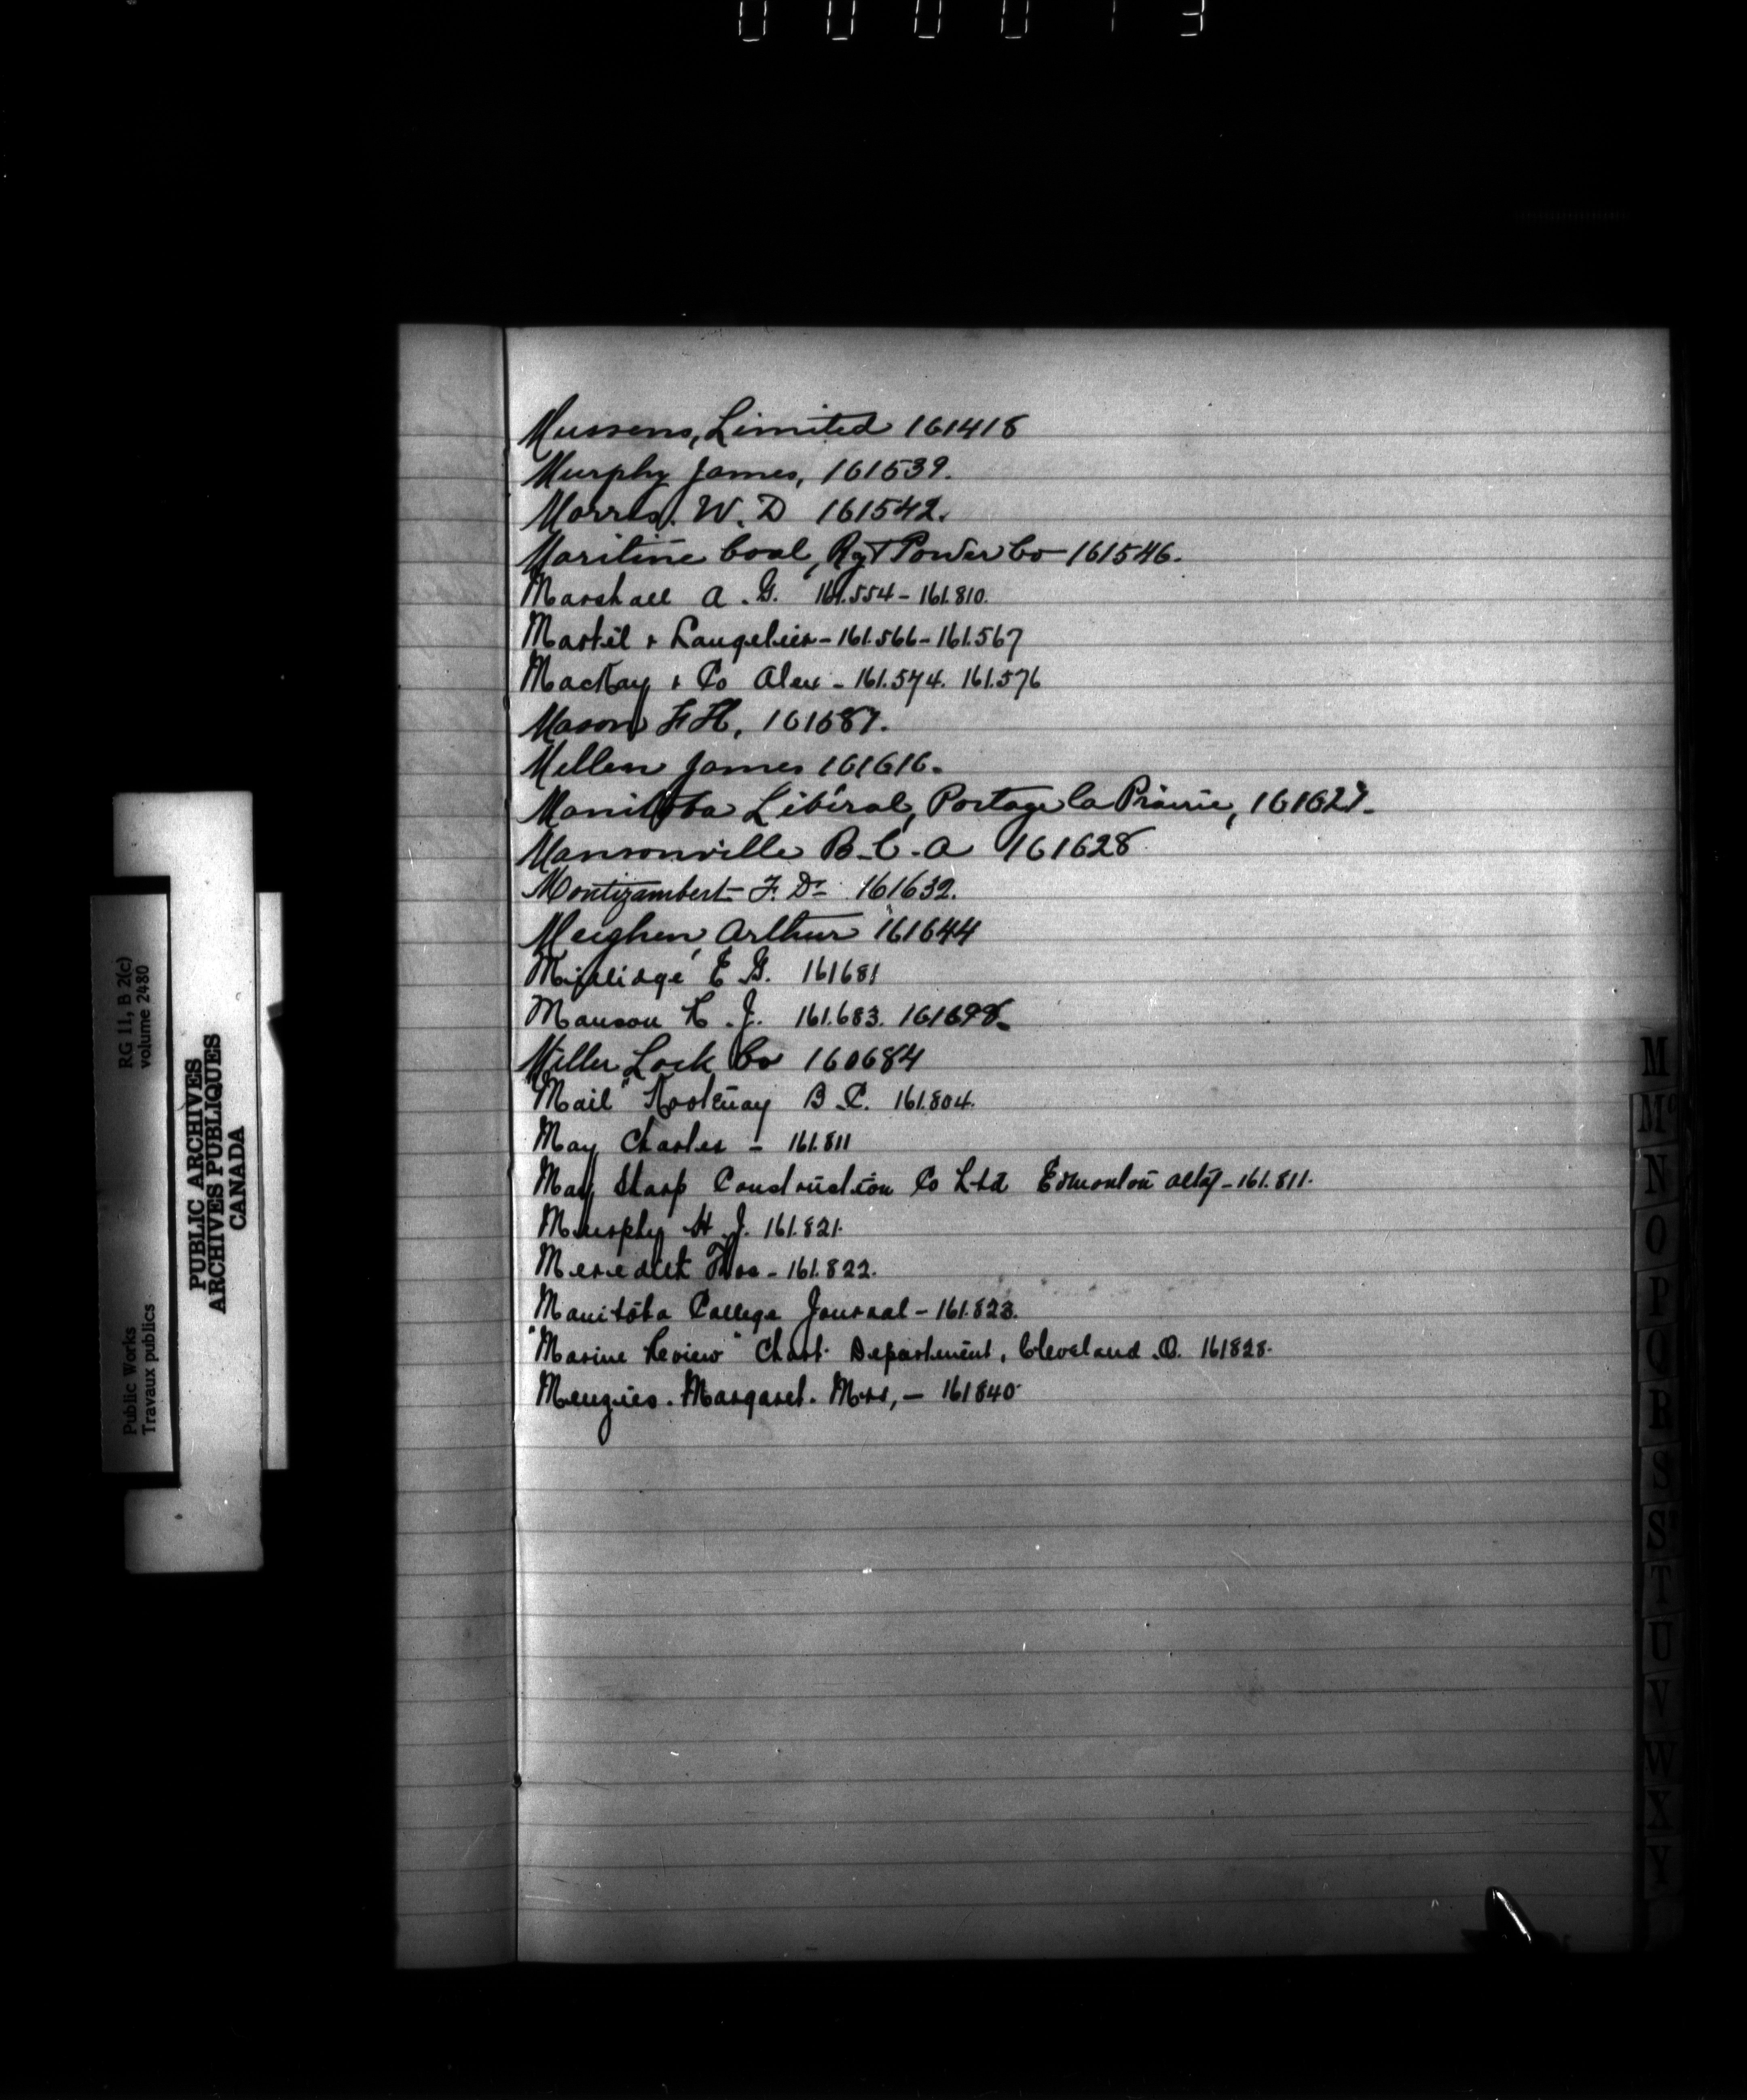 000013
Mussens, Limited 161418
Murphy James, 161539.
Morris. W. D 161542.
Maritime Coal, Ry & Power Co - 161546.
Marshall A. G. 161.554 - 161.810.
Martil & Langelier - 161.566 - 161.567
MacKay & Co Alex - 161.574. 161.576
Mason F H, 161687.
Mellen James 161616.
Manitoba Libéral, Portage la Prairie, 161627.
Mansonville B. C. A 161628
Montizambert F. Dr 161632.
Meighen, Arthur 161644
Millidge E G. 161681
Manson H. J. 161.683. 161698.
Miller Lock Co 160684
"Mail" Kootenay B. C. 161.804.
May Charles - 161.811
May Sharp Construction Co Ltd Edmonton Alta - 161.811.
Murphy H. J. 161.821.
Meredith Thos - 161.822.
Manitoba College Journal - 161.823.
"Marine Review" Chart Department, Cleveland. O. 161828.
Menzies. Margaret. Mrs, - 161840
RG 11, B 2(c)
volume 2480
Public Works
Travaux publics
PUBLIC ARCHIVES
ARCHIVES PUBLIQUES
CANADA
M
Mc
N
O
P
Q
R
S
S
T
U
V
W
X
Y